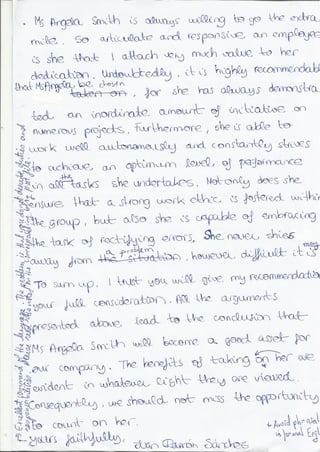 . Ms Angela Smith is always willing to go the extra
mile. So articulate and responsive an employee
is she that I attach very much value to her
dedication. Undoubtedly, it is highly recommendabl
that Ms Angela be chosen
taken on, for she has always demonstra
ted an inordinate amount of initiative on
numerous projects. Furthermore, she is able to
work well autonomously and constantly strives
to achieve an optimum level of performance
in all the tasks she undertakes. Not only does she
ensure that a strong work ethic is fostered within
the group, but also she is capable of embracing
the task of rectifying errors, She never shies
away from the situation, however difficult it is
the problem
may
To sum up, I trust you will give my recommendation
your full consideration. All the arguments
presented above lead to the conclusion that
Ms Angela Smith will become a good asset for
our company. The benefits of taking on her are
evident in whatever light they are viewed.
Consequently, we should not miss the opportunity
to count on her.
Yours faithfully,
Avoid phr-verbs
in formal Engl
Excellent command of language. The problem is